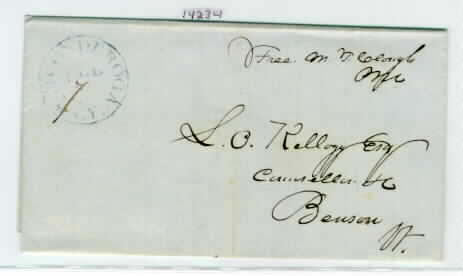 14234
TICONDEROGA
N.Y.
7
Free. M T Clough
PM
L. O. Kellogg Esq
Counsellor &c
Benson
Vt.